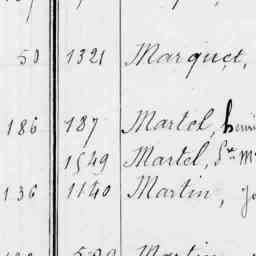 53 1321 Marquet,
186 187 Martel,
1549 Martel,
136 1140 Martin,
Martin